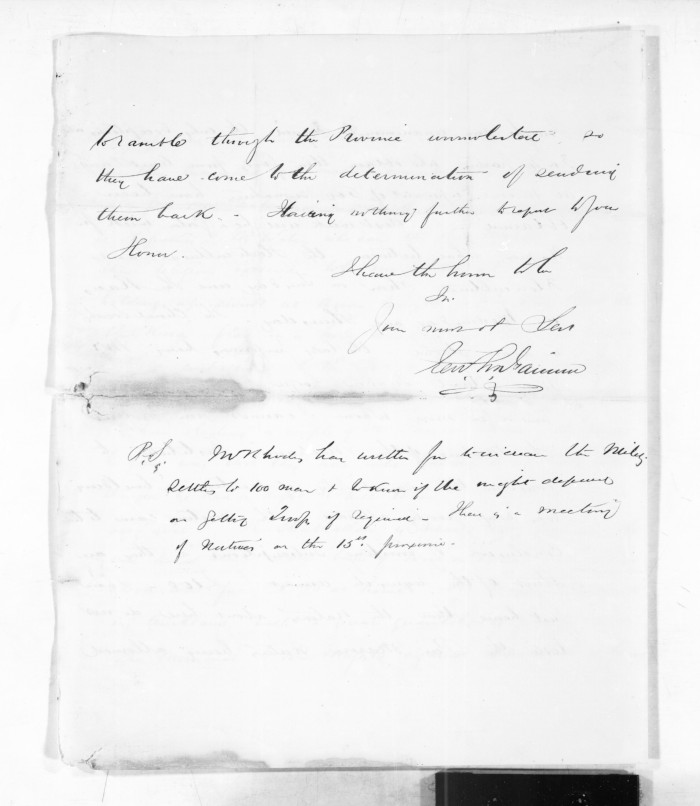 to ramble through the Province unmolested so
they have come to the determination of sending
them back. - Having nothing further to report to Your
Honor.
I have the honor to be
Sir
Your most ob Serv
P.S. Mr Rhodes has written for to increase the Milty
Settlers to 100 men & to know if he might depend
on getting Troops if required - There is a meeting
of Natives on the 15th proximo.